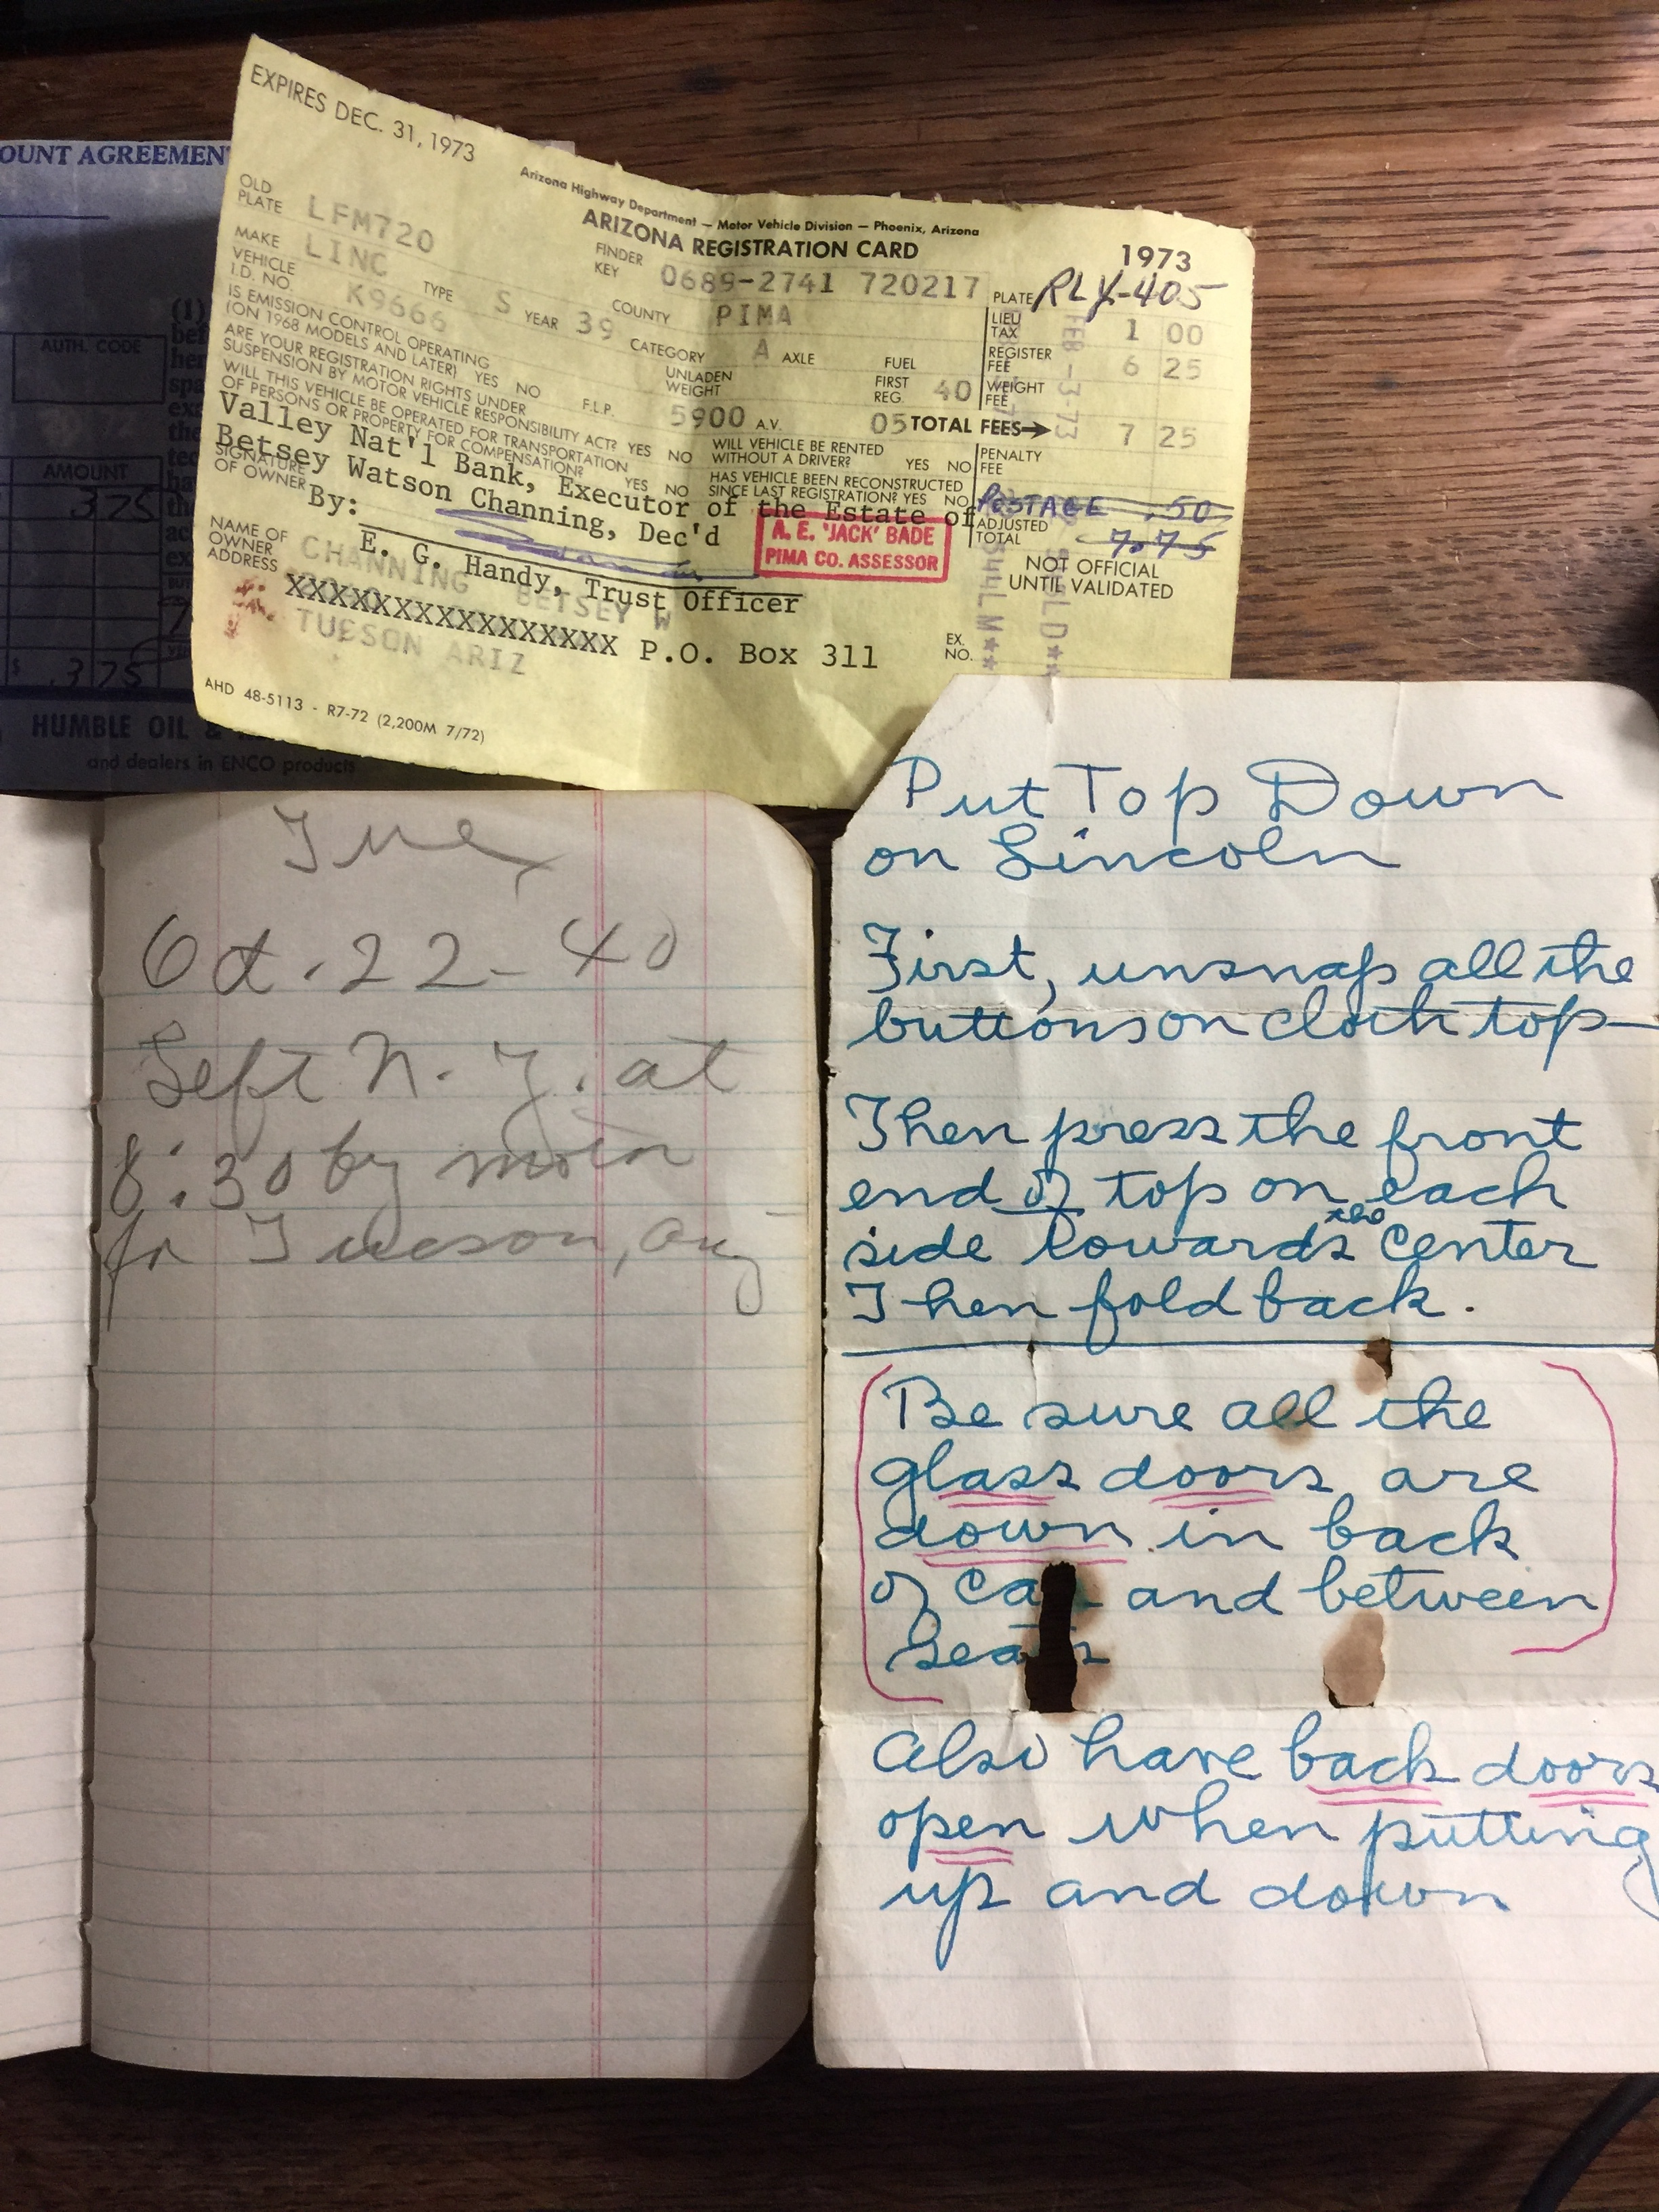 EXPIRES DEC. 31, 1973
Arizona Highway Department — Motor Vehicle Division — Phoenix, Arizona
ARIZONA REGISTRATION CARD
1973
OLD PLATE LFM720
FINDER KEY 0689-2741 720217
PLATE RLX-405
MAKE LINC
VEHICLE I.D. NO. K9666
TYPE S YEAR 39
COUNTY PIMA
LIEU TAX 1 00
CATEGORY A AXLE FUEL
REGISTER FEE 6 25
IS EMISSION CONTROL OPERATING
(ON 1968 MODELS AND LATER) YES NO
UNLADEN WEIGHT 5900
FIRST REG. 40
WEIGHT FEE
ARE YOUR REGISTRATION RIGHTS UNDER
SUSPENSION BY MOTOR VEHICLE RESPONSIBILITY ACT? YES NO
F.L.P.
A.V. 05
TOTAL FEES→ 7 25
WILL THIS VEHICLE BE OPERATED FOR TRANSPORTATION
OF PERSONS OR PROPERTY FOR COMPENSATION? YES NO
WILL VEHICLE BE RENTED
WITHOUT A DRIVER? YES NO
PENALTY FEE
HAS VEHICLE BEEN RECONSTRUCTED
SINCE LAST REGISTRATION? YES NO
POSTAGE .50
Valley Nat'l Bank, Executor of the Estate of
Betsey Watson Channing, Dec'd
ADJUSTED TOTAL 7.75
SIGNATURE OF OWNER By:
A. E. 'JACK' BADE
PIMA CO. ASSESSOR
NOT OFFICIAL
UNTIL VALIDATED
E. G. Handy, Trust Officer
NAME OF OWNER ADDRESS
CHANNING BETSEY W
XXXXXXXXXXXXXXXXX P.O. Box 311
TUCSON ARIZ
EX. NO.
AHD 48-5113 - R7-72 (2,200M 7/72)
FEB -3-73
OUNT AGREEMEN
(1)
AUTH. CODE
AMOUNT
3 75
$ 3 75
HUMBLE OIL &
and dealers in ENCO products
Tue
Oct. 22 - 40
Left N. Y. at
8:30 by motor
for Tucson, Ariz
Put Top Down
on Lincoln
First, unsnap all the
buttons on cloth top—
Then press the front
end of top on each
side towards the center
Then fold back.
Be sure all the
glass doors are
down in back
of car and between
seats
Also have back doors
open when putting
up and down